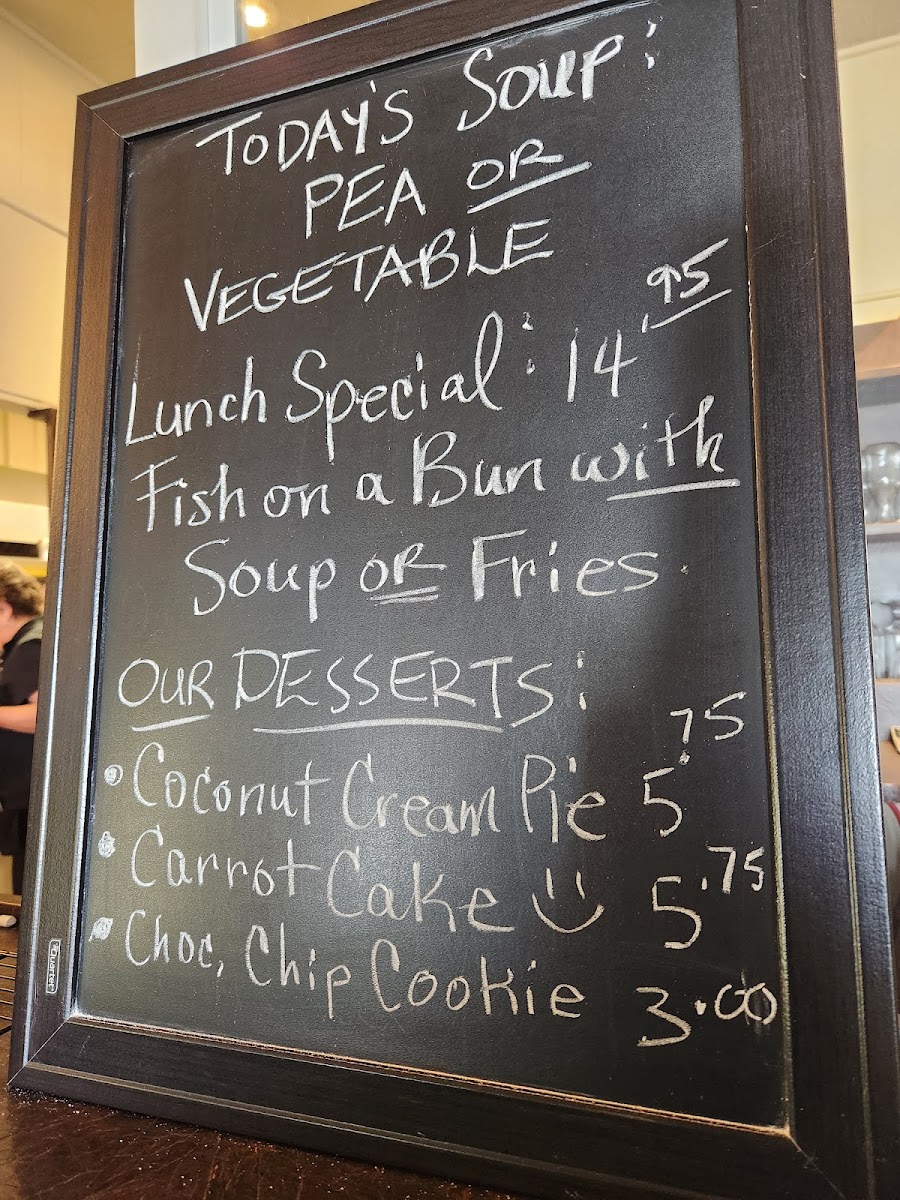 TODAY'S SOUP:
PEA OR
VEGETABLE
Lunch Special: 14.95
Fish on a Bun with
Soup OR Fries.
OUR DESSERTS:
• Coconut Cream Pie 5.75
• Carrot Cake 5.75
• Choc, Chip Cookie 3.00
Quartet